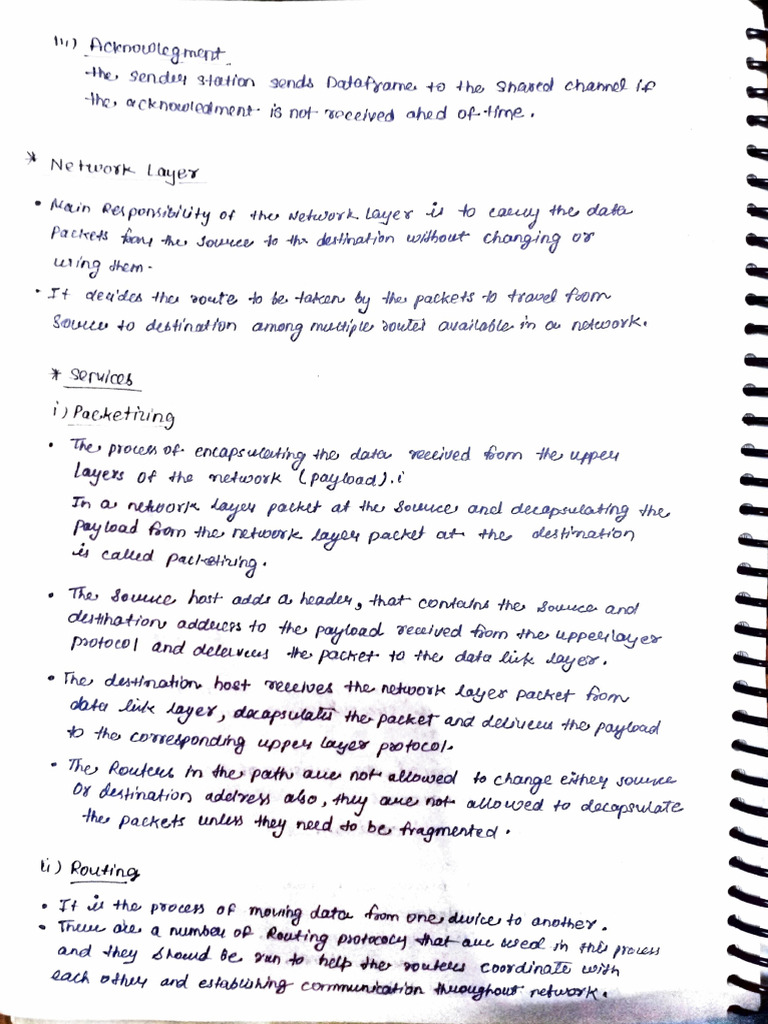 iii) Acknowlegment
the sender station sends Dataframe to the shared channel if
the acknowledment is not received ahed of time.
* Network Layer
• Main Responsibility of the Network Layer is to carry the data
Packets from the source to the destination without changing or
using them.
• It decides the route to be taken by the packets to travel from
Source to destination among multiple routes available in a network.
* Services
i) Packetizing
• The process of encapsulating the data received from the upper
layers of the network (payload).i
In a network layer packet at the source and decapsulating the
payload from the network layer packet at the destination
is called packetizing.
• The source host adds a header, that contains the source and
destination address to the payload received from the upper layer
protocol and delervers the packet to the data link layer.
• The destination host receives the network layer packet from
data link layer, decapsulates the packet and delivers the payload
to the corresponding upper layer protocol.
• The Routers in the path are not allowed to change either source
or destination address also, they are not allowed to decapsulate
the packets unless they need to be fragmented.
ii) Routing
• It is the process of moving data from one device to another.
• There are a number of Routing protococy that are used in this process
and they should be run to help the routers coordinate with
each other and establishing communication throughout network.